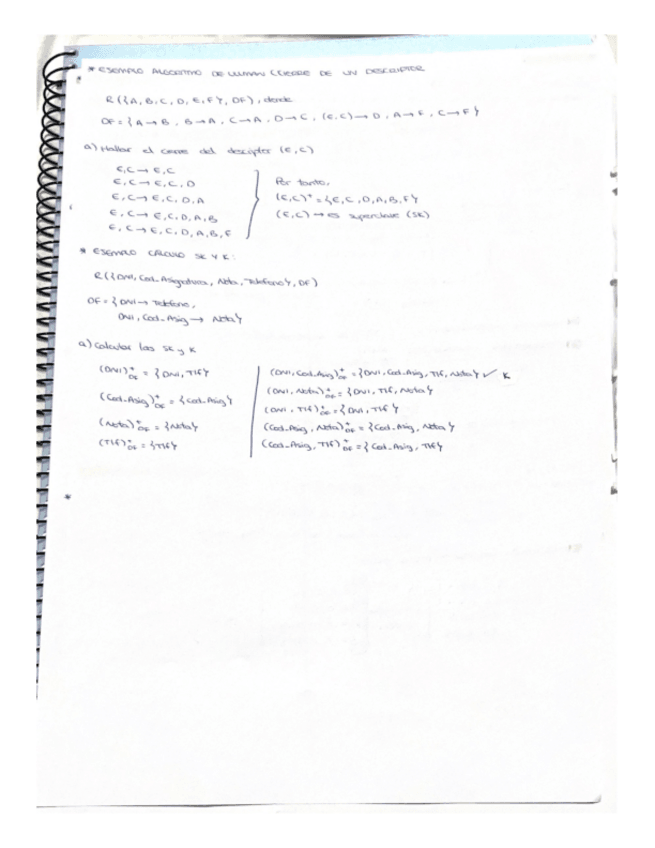 * ESEMPLO ALGORITMO DE ULLMAN (CIERRE DE UN DESCRIPTOR
R({A, B, C, D, E, F}, DF), donde
DF = {A → B, B → A, C → A, D → C, (E,C) → D, A → F, C → F}
a) Hallar el cierre del descriptor (E,C)
E,C → E,C
E,C → E,C,D
E,C → E,C,D,A
E,C → E,C,D,A,B
E,C → E,C,D,A,B,F
Por tanto,
(E,C)⁺ = {E,C,D,A,B,F}
(E,C) → es superclave (SK)
* ESEMPLO CÁLCULO SK Y K:
R({DNI, Cod_Asignatura, Nota, Telefono}, DF)
DF = {DNI → Telefono,
DNI, Cod_Asig → Nota}
a) Calcular las SK y K
(DNI)⁺DF = {DNI, Tlf}
(Cod_Asig)⁺DF = {Cod_Asig}
(Nota)⁺DF = {Nota}
(Tlf)⁺DF = {Tlf}
(DNI, Cod_Asig)⁺DF = {DNI, Cod_Asig, Tlf, Nota} ✓ K
(DNI, Nota)⁺DF = {DNI, Tlf, Nota}
(DNI, Tlf)⁺DF = {DNI, Tlf}
(Cod_Asig, Nota)⁺DF = {Cod_Asig, Nota}
(Cod_Asig, Tlf)⁺DF = {Cod_Asig, Tlf}
*